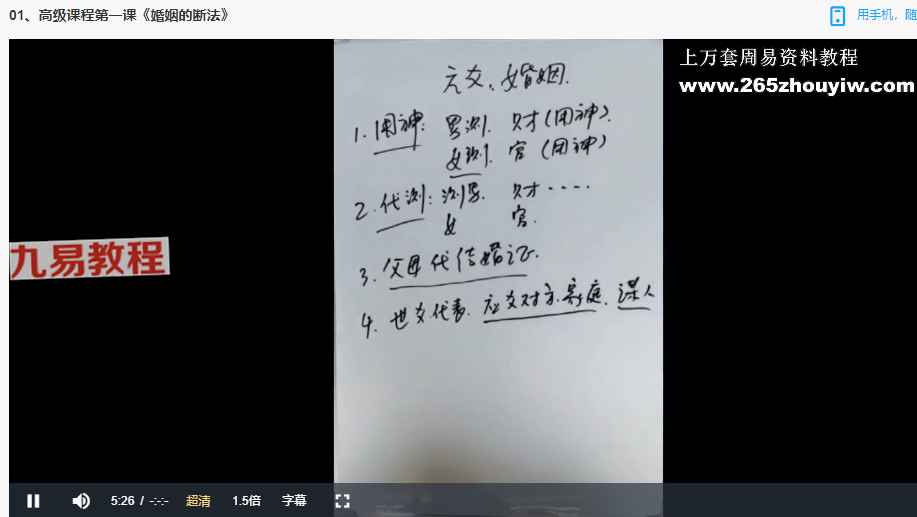 01、高级课程第一课《婚姻的断法》
用手机，随
上万套周易资料教程
www.265zhouyiw.com
六爻、婚姻.
1.用神: 男测. 财(用神).
女测. 官(用神)
2.代测: 测男. 财····
女 官.
九易教程
3.父母代结婚证.
4.世爻代表. 应爻对方.家庭.谋人
5:26 / -:-:-
超清
1.5倍
字幕